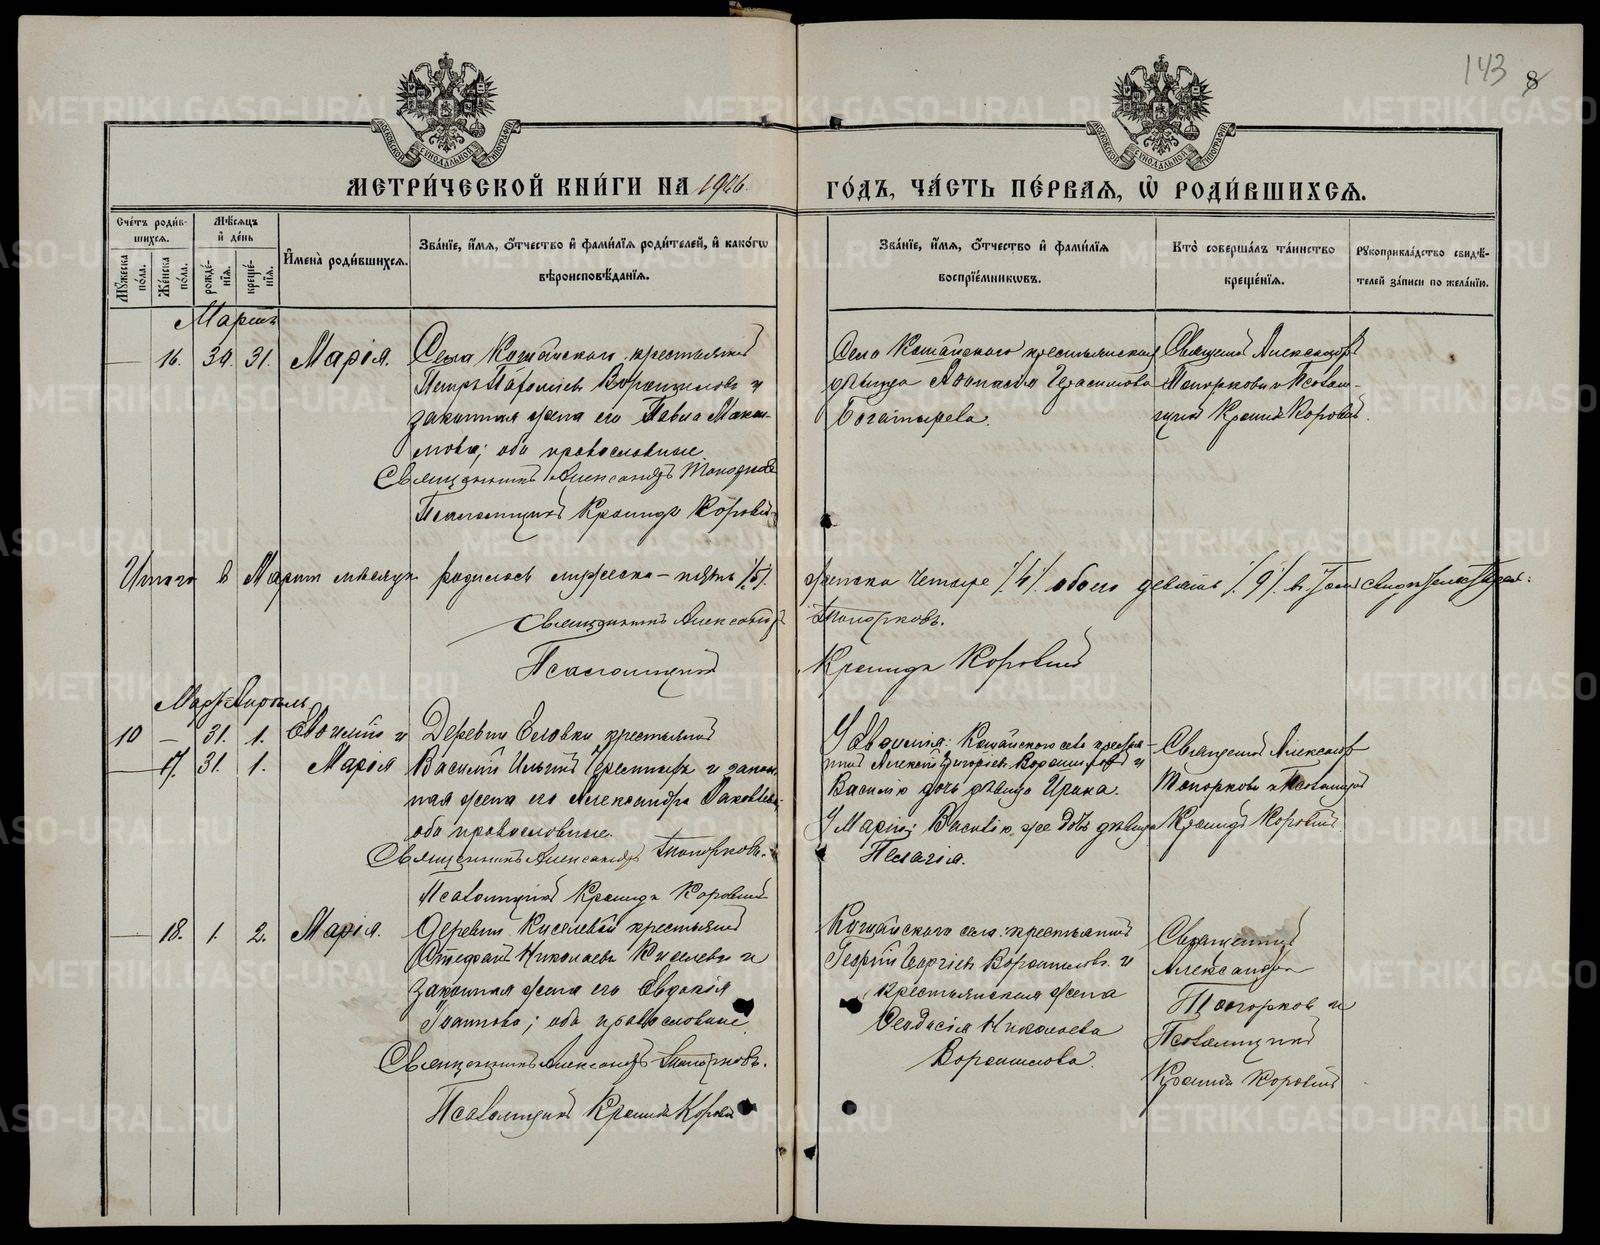 143 8
МОСКОВСКОЙ СѴНОДАЛЬНОЙ ТИПОГРАФІИ
МОСКОВСКОЙ СѴНОДАЛЬНОЙ ТИПОГРАФІИ
МЕТРИ́ЧЕСКОЙ КНИ́ГИ НА 1906.
ГО́ДЪ, ЧА́СТЬ ПЕ́РВАѦ, Ѡ҆ РОДИ́ВШИХСѦ.
Сче́тъ роди́в-
шихсѧ.
Мꙋ́жеска по́ла.
Же́нска по́ла.
Мѣ́сѧцъ
и҆ де́нь
рожде́-
нїѧ.
креще́-
нїѧ.
И҆мена̀ роди́вшихсѧ.
Зва́нїе, и҆́мѧ, ѻ҆́тчество и҆ фами́лїѧ роди́телей, и҆ како́гѡ
вѣроисповѣ́данїѧ.
Зва́нїе, и҆́мѧ, ѻ҆́тчество и҆ фами́лїѧ
воспрїе́мникѡвъ.
Кто̀ соверша́лъ та́инство
креще́нїѧ.
Рꙋкоприкла́дство свидѣ́-
телей за́писи по жела́нїю.
Мартъ
— 16. 30. 31. Марія.
Села Кошайского крестьянинъ
Петръ Ворошиловъ и
законная жена его Павла Макси-
мова; оба православные.
Священникъ Александръ Топорковъ
Псаломщикъ Кронидъ Коровинъ
Села Кошайского крестьянская
дѣвица Герасимова
Богатырева.
Священникъ Александръ
Топорковъ и Псалом-
щикъ Кронидъ Коровинъ.
Итого в Мартѣ мѣсяцѣ родилось мужеска — пять /5/.
женска четыре /4/. обоего девять /9/. въ томъ
Священникъ Александръ
Топорковъ.
Псаломщикъ
Кронидъ Коровинъ
Мартъ-Апрѣль
10 — 31. 1. Евѳимій и
— 17. 31. 1. Марія
Деревни Еловки крестьянинъ
Василій Ильинъ и закон-
ная жена его Александра Іаковлева;
оба православные.
Священникъ Александръ Топорковъ.
Псаломщикъ Кронидъ Коровинъ
У Евѳимія: Кошайского села крестья-
нинъ Алексѣй Григоріевъ Ворошиловъ и
Василію дочь дѣвица Ирина.
У Маріи: Василію же дочь дѣвица
Пелагія.
Священникъ Александръ
Топорковъ и Псаломщикъ
Кронидъ Коровинъ
— 18. 1. 2. Марія.
Деревни Киселевой крестьянинъ
Стефанъ Николаевъ Киселевъ и
законная жена его Евдокія
Іоаннова; оба православные.
Священникъ Александръ Топорковъ.
Псаломщикъ Кронидъ Коровинъ
Кошайского села: крестьянинъ
Георгій Георгіевъ Ворошиловъ и
крестьянская жена
Николаева
Ворошилова.
Священникъ
Александръ
Топорковъ и
Псаломщикъ
Кронидъ Коровинъ
METRIKI.GASO-URAL.RU